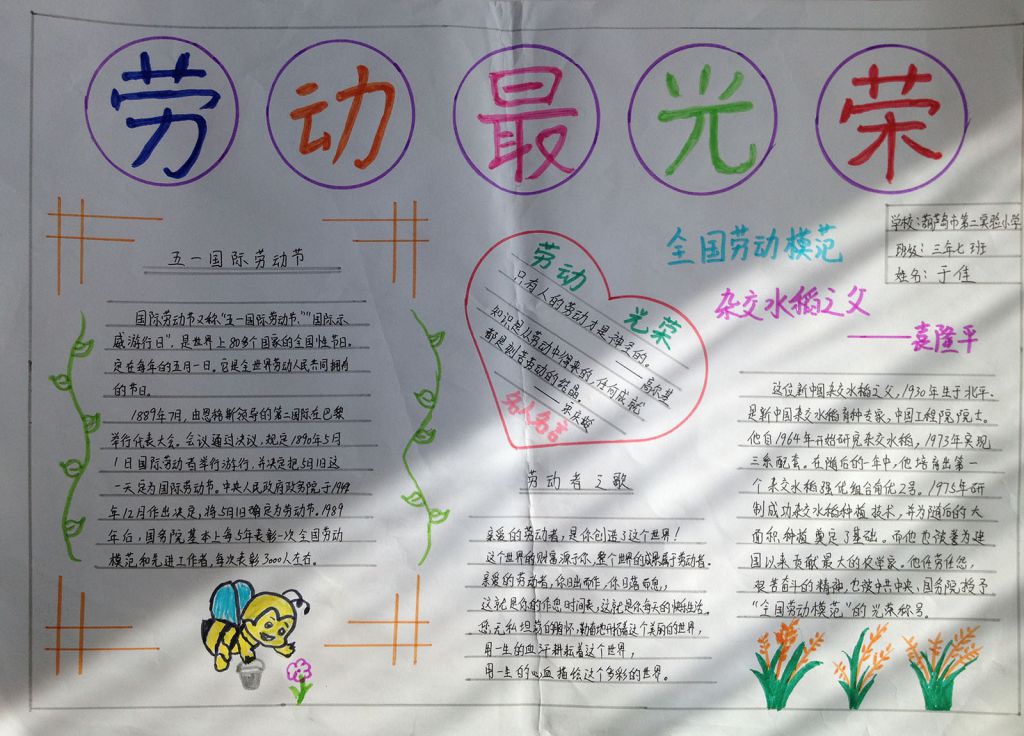 劳动最光荣
学校：葫芦岛市第二实验小学
班级：三年七班
姓名：于佳
五一国际劳动节
国际劳动节又称“五一国际劳动节”、“国际示
威游行日”，是世界上80多个国家的全国性节日。
定在每年的五月一日。它是全世界劳动人民共同拥有
的节日。
1889年7月，由恩格斯领导的第二国际在巴黎
举行代表大会。会议通过决议，规定1890年5月
1日国际劳动者举行游行，并决定把5月1日这
一天定为国际劳动节。中央人民政府政务院于1949
年12月作出决定，将5月1日确定为劳动节。1989
年后，国务院基本上每5年表彰一次全国劳动
模范和先进工作者，每次表彰3000人左右。
劳动
光荣
只有人的劳动才是神圣的。
——高尔基
知识是从劳动中得来的，任何成就
都是刻苦劳动的结晶。
——宋庆龄
名人名言
劳动者之歌
亲爱的劳动者，是你创造了这个世界！
这个世界的财富源于你，整个世界的成果属于劳动者。
亲爱的劳动者，你日出而作，你日落而息，
这就是你的作息时间表，这就是你每天的快乐生活。
您无私坦荡的胸怀，勤奋地开拓着这个美丽的世界，
用一生的血汗耕耘着这个世界，
用一生的心血描绘这个多彩的世界。
全国劳动模范
杂交水稻之父
——袁隆平
这位新中国杂交水稻之父，1930年生于北平。
是新中国杂交水稻育种专家，中国工程院院士。
他自1964年开始研究杂交水稻，1973年实现
三系配套。在随后的一年中，他培育出第一
个杂交水稻强优组合南优2号。1975年研
制成功杂交水稻种植技术，并为随后的大
面积种植奠定了基础。而他也被誉为建
国以来贡献最大的农学家。他任劳任怨，
艰苦奋斗的精神，也被中共中央、国务院授予
“全国劳动模范”的光荣称号。